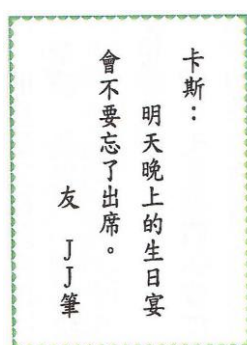 卡斯：
明天晚上的生日宴
會不要忘了出席。
友 JJ筆